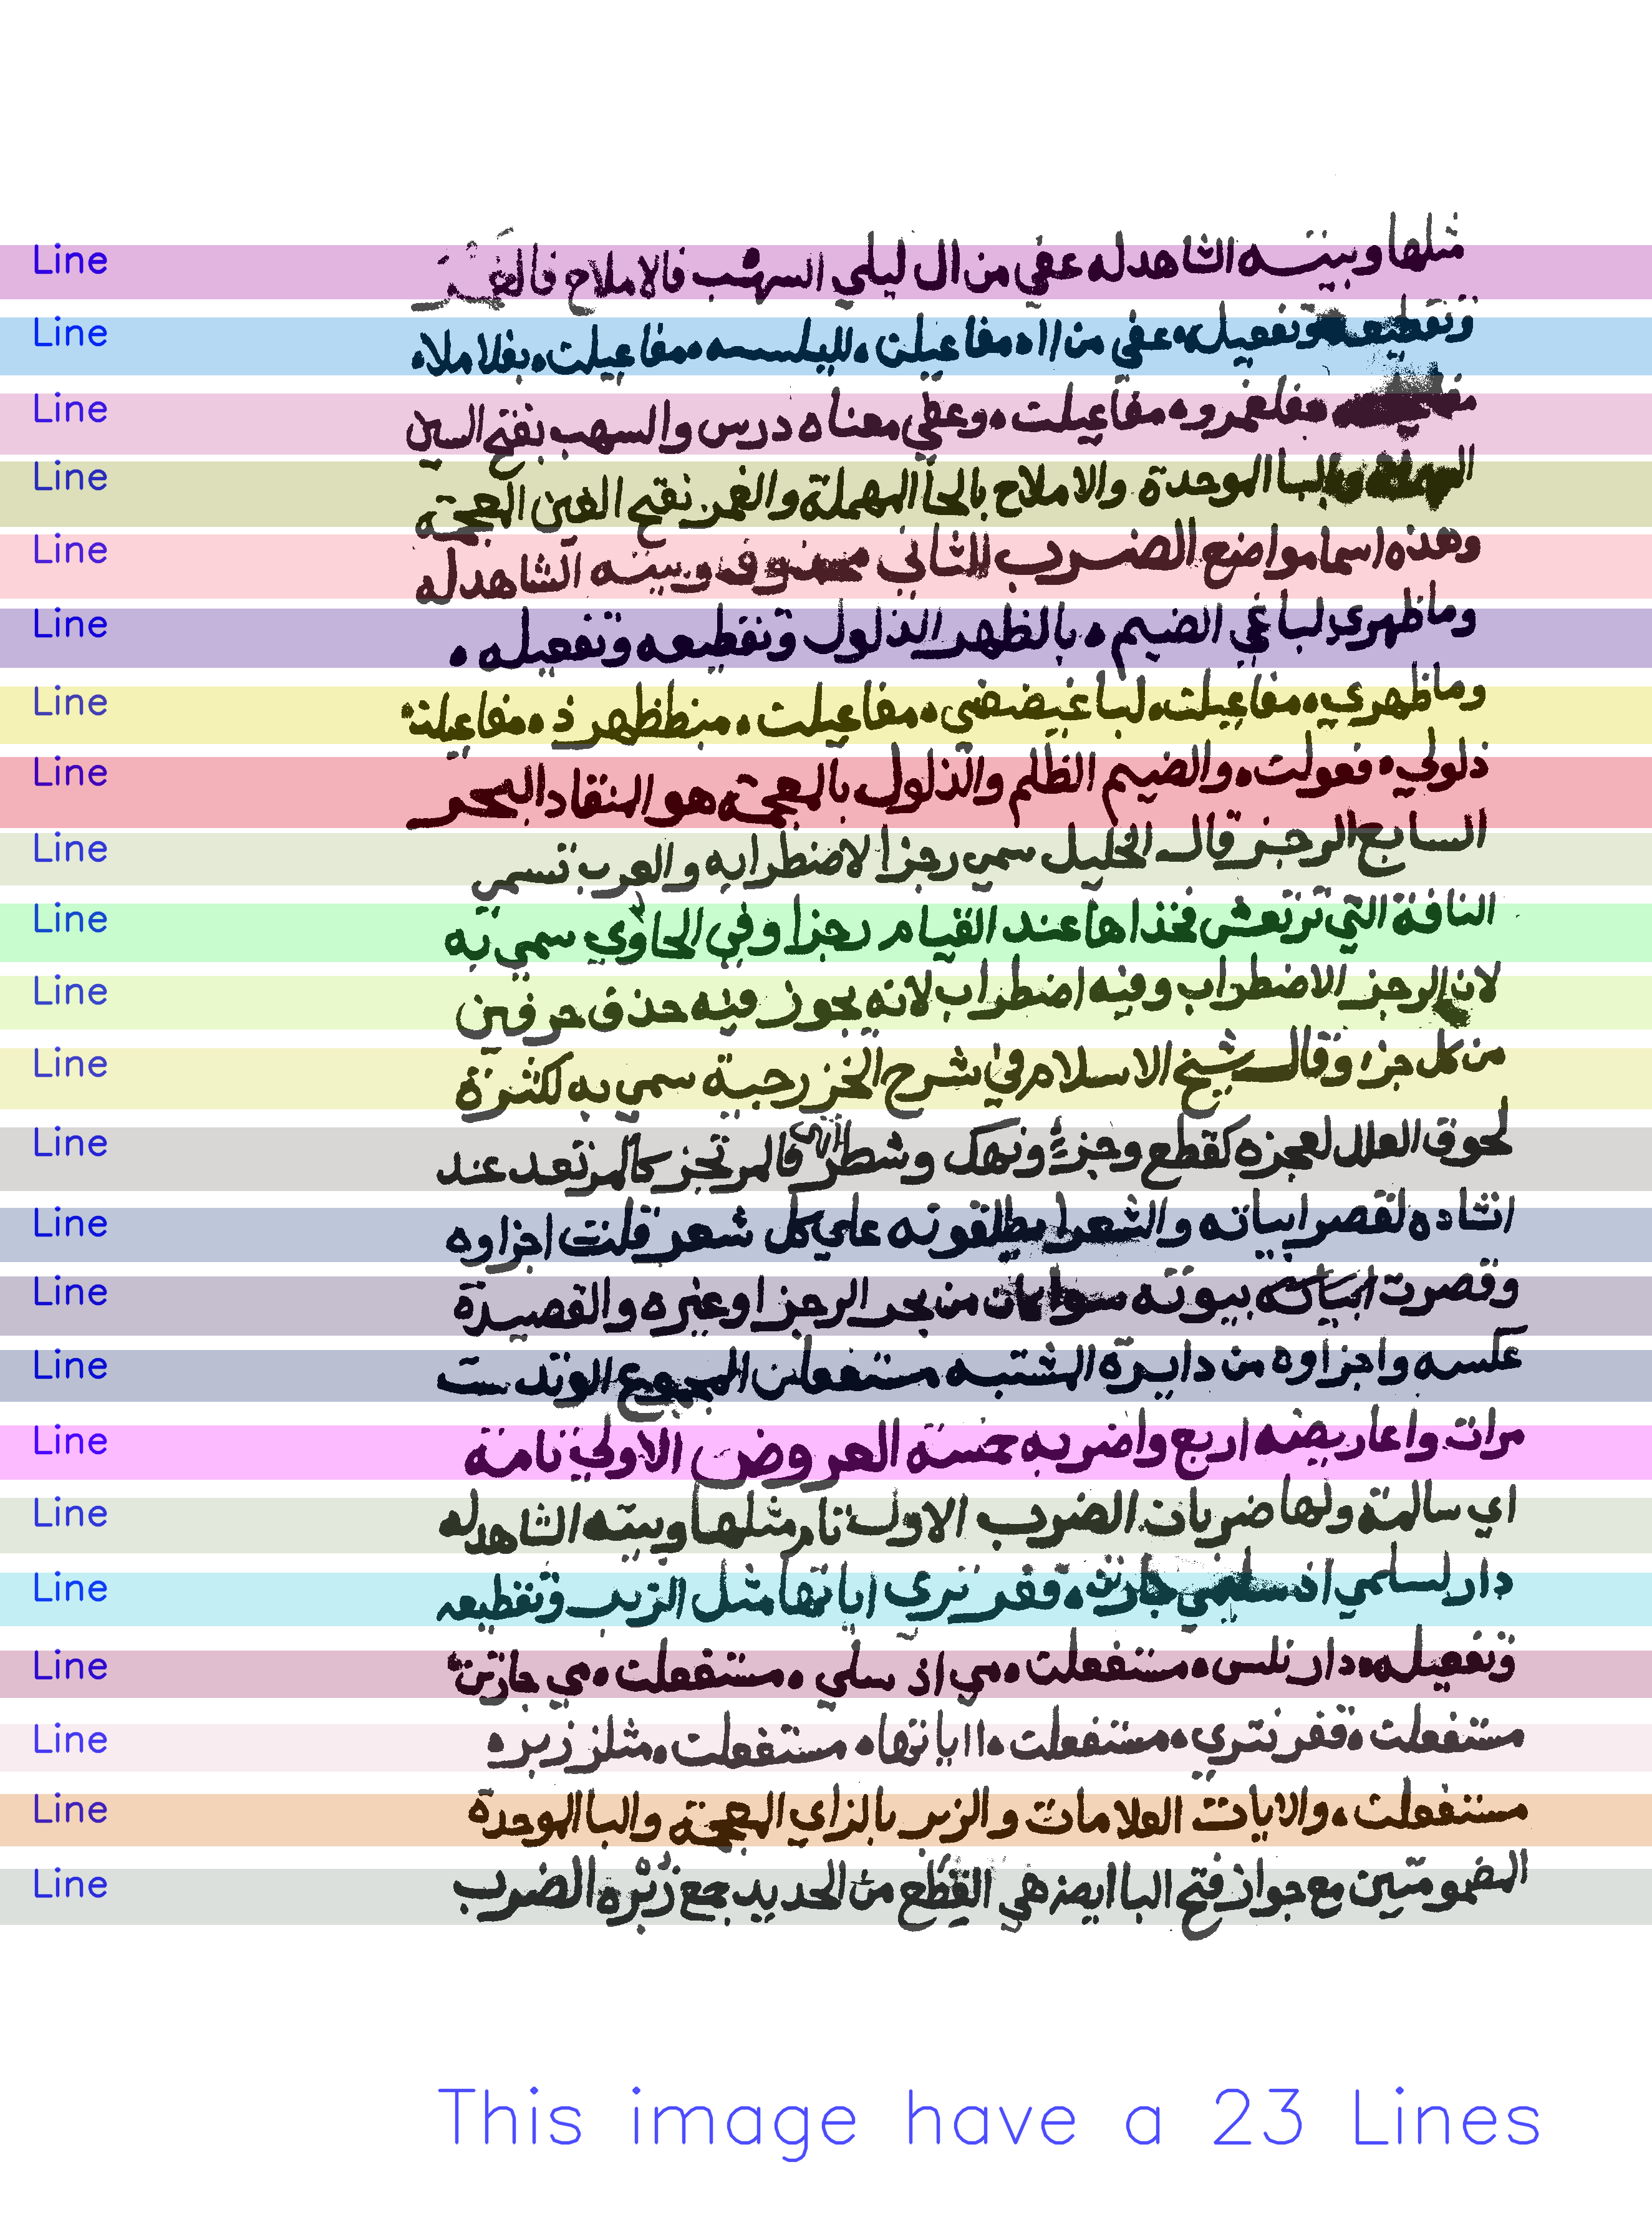 Line مثلها وبيته الشاهد له عفي من ال ليلي السهب فالاملاح فالغمر
Line وتقطيعه وتفعيله عفي من اا ه مفاعيلن ه لليلسسه ه مفاعيلن ه بفلاملاه
Line مفلغمرو ه مفاعيلن ه وعفي معناه درس والسهب بفتح السين
Line المهملة والبا الموحدة والاملاح بالحا المهملة والغمر بفتح الغين المعجمة
Line وهذه اسما مواضع الضرب الثاني محذوف وبيته الشاهد له
Line وماظهري لباغي الضيم ه بالظهر الذلول وتقطيعه وتفعيله ه
Line وماظهري ه مفاعيلن ه لباغيضضي ه مفاعيلن ه منظظهر ذ ه مفاعيلن
Line ذلولي ه فعولن ه والضيم الظلم والذلول بالمعجمة هو المنقاد البحر
Line السابع الرجز قال الخليل سمي رجزا لاضطرابه والعرب تسمي
Line الناقة التي ترتعش فخذاها عند القيام رجزا وفي الحاوي سمي به
Line لان الرجز الاضطراب وفيه اضطراب لانه يجوز فيه حذف حرفين
Line من كل جزء وقال شيخ الاسلام في شرح الخزرجية سمي به لكثرة
Line لحوق العلل لعجزه كقطع وجزء ونهك وشطر فالمرتجز كالمرتعد عند
Line انشاده لقصر ابياته والشعرا يطلقونه علي كل شعر قلت اجزاوه
Line وقصرت ابياته بيوته سوا كان من بحر الرجز اوغيره والقصيدة
Line عكسه واجزاوه من دايرة المشتبه مستفعلن المجموع الوتد ست
Line مرات واعاريضه اربع واضربه خمسة العروض الاولي تامة
Line اي سالمة ولها ضربان الضرب الاول تام مثلها وبيته الشاهد له
Line دار لسلمي اذ سليمي جارتن ه قفر تري اياتها مثل الزبر وتقطيعه
Line وتفعيله ه دار نلس ه مستفعلن ه مي اذ سلي ه مستفعلن ه مي جارتن
Line مستفعلن ه قفر نتري ه مستفعلن ه اا ياتها ه مستفعلن ه مثلز زبره
Line مستفعلن ه والايات العلامات والزبر بالزاي المعجمة والبا الموحدة
Line المضمومتين مع جواز فتح البا ايضا هي القطع من الحديد جمع زبره الضرب
This image have a 23 Lines